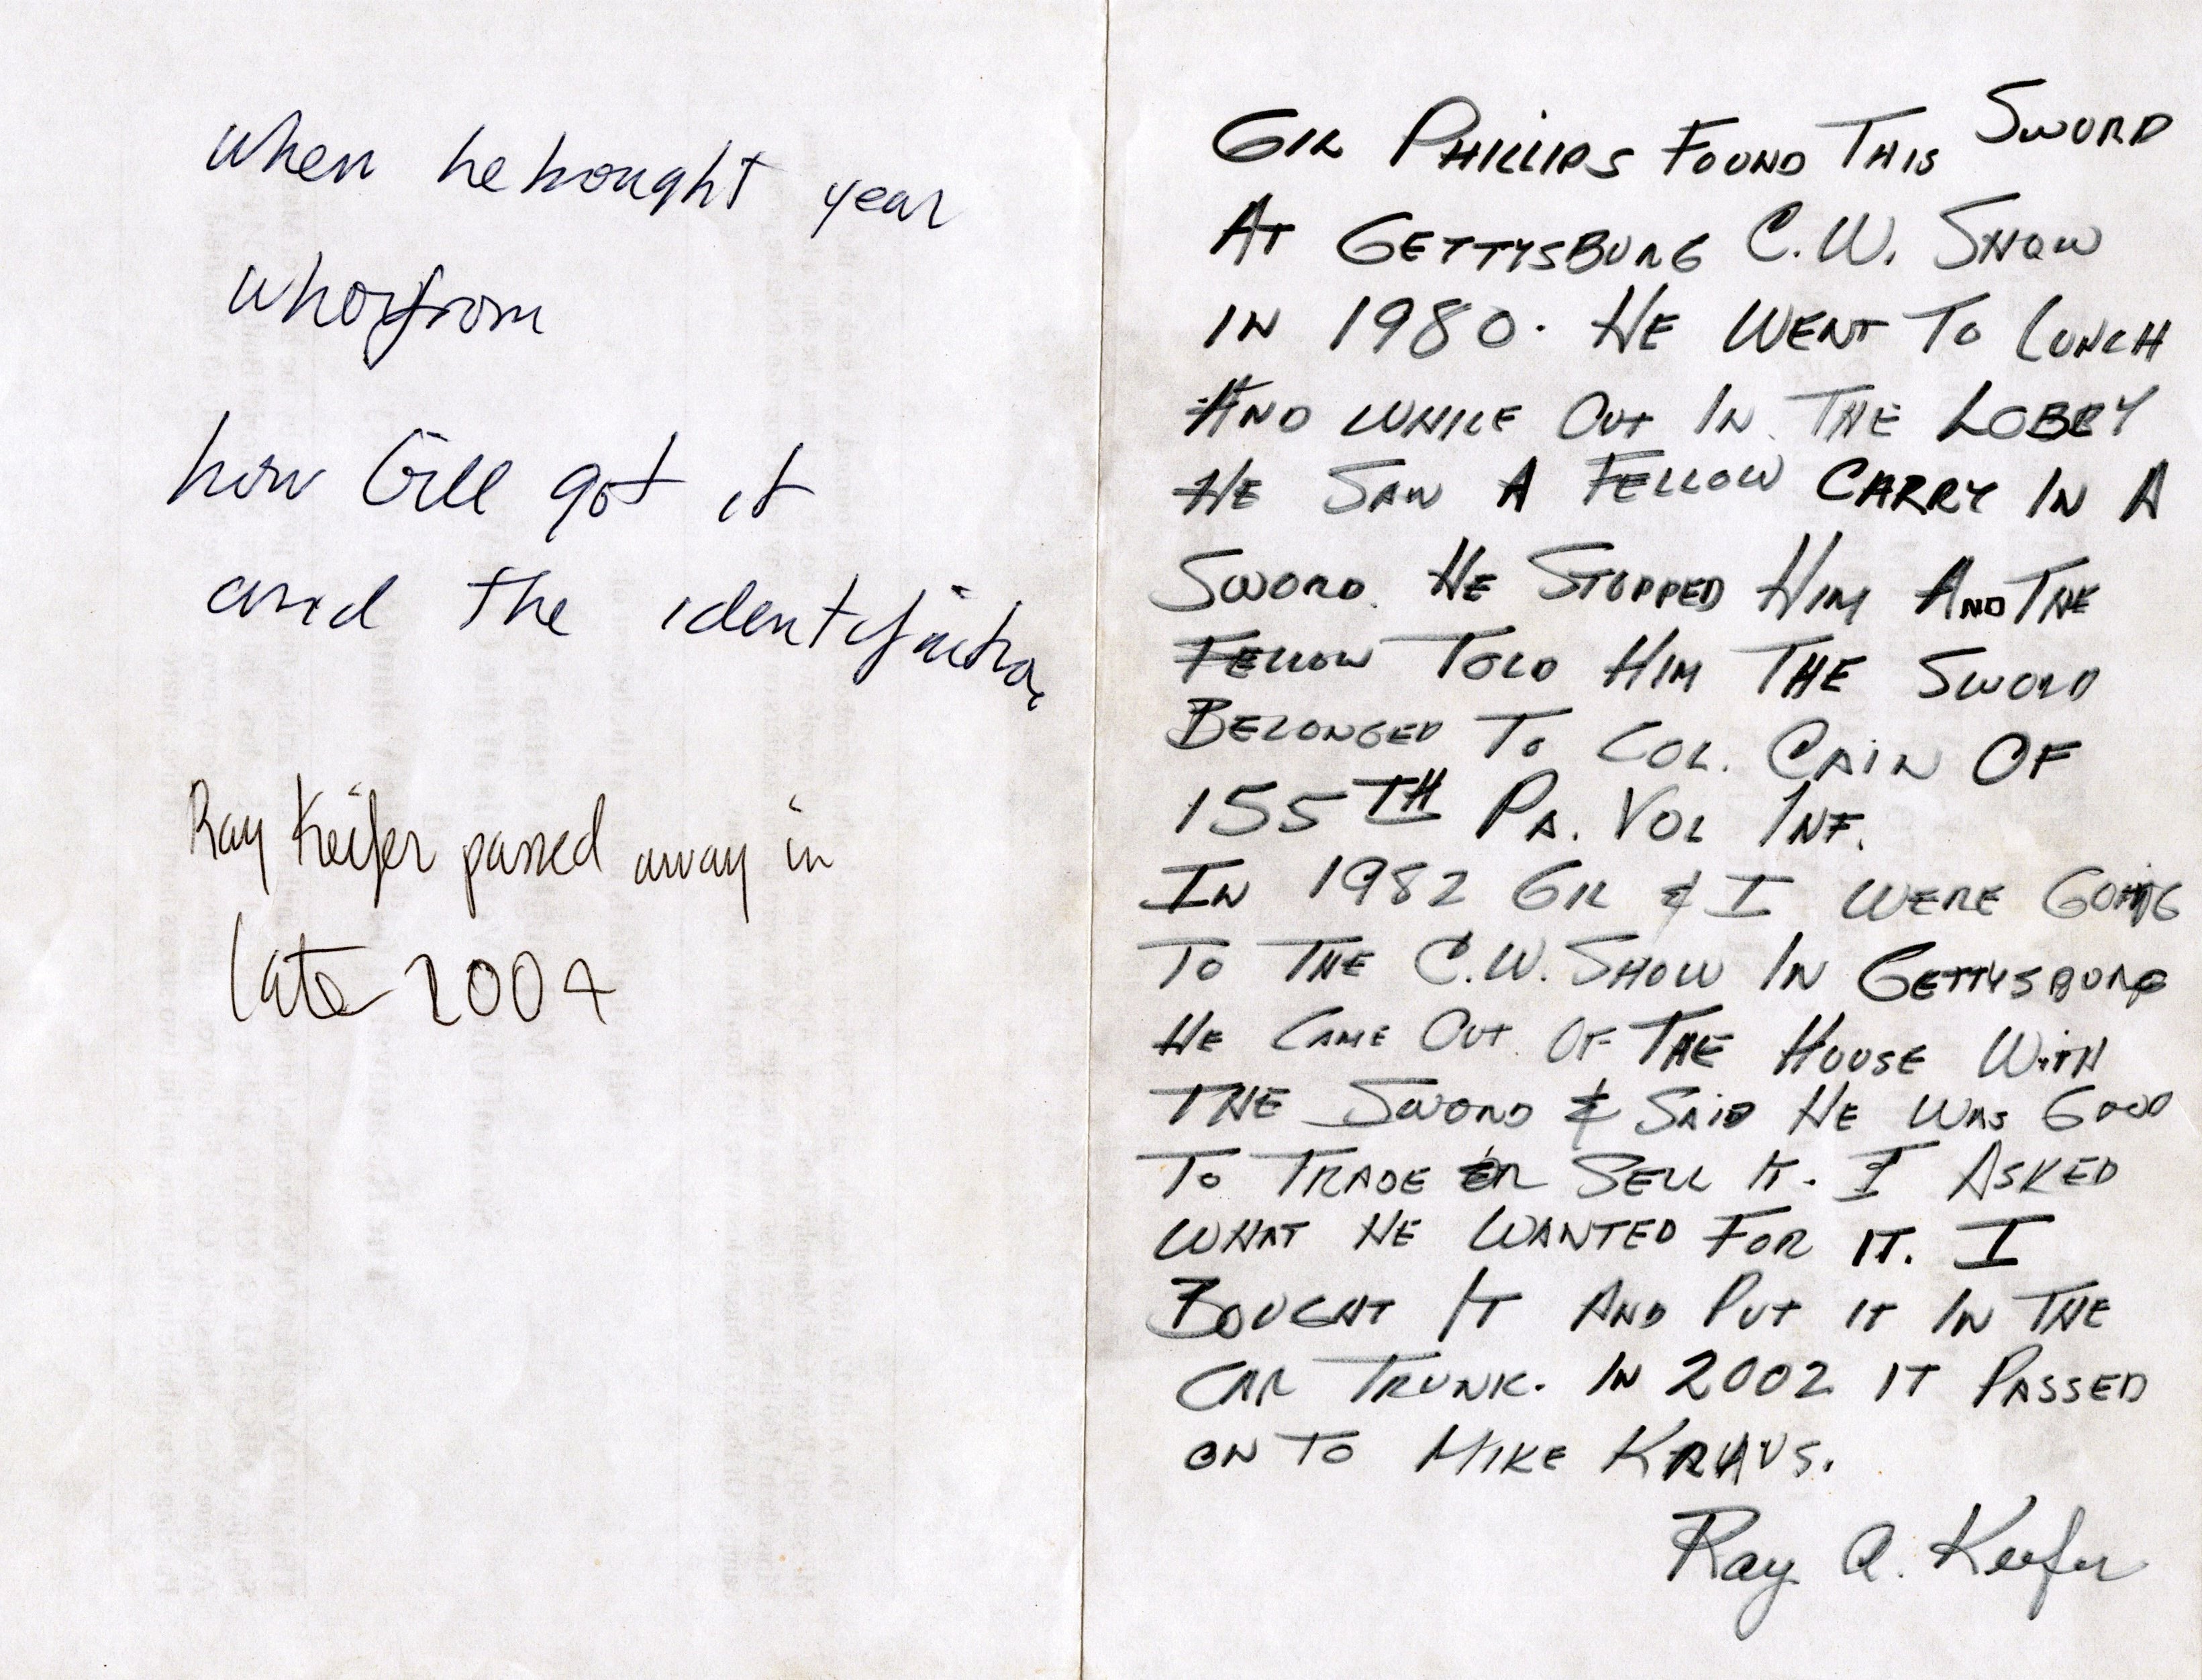 when he bought year
who from
how Gill got it
and the identification
Ray Keifer passed away in
late 2004
GIL PHILLIPS FOUND THIS SWORD
AT GETTYSBURG C.W. SHOW
IN 1980. HE WENT TO LUNCH
AND WHILE OUT IN THE LOBBY
HE SAW A FELLOW CARRY IN A
SWORD. HE STOPPED HIM AND THE
FELLOW TOLD HIM THE SWORD
BELONGED TO COL. CAIN OF
155TH PA. VOL INF.
IN 1982 GIL & I WERE GOING
TO THE C.W. SHOW IN GETTYSBURG
HE CAME OUT OF THE HOUSE WITH
THE SWORD & SAID HE WAS GOOD
TO TRADE OR SELL IT. I ASKED
WHAT HE WANTED FOR IT. I
BOUGHT IT AND PUT IT IN THE
CAR TRUNK. IN 2002 IT PASSED
ON TO MIKE KRAUS.
Ray A. Keefer